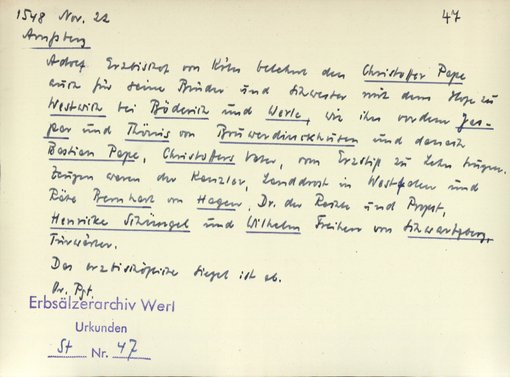 1548 Nov. 22
47
Arnsberg
Adolf Erzbischof von Köln belehnt den Christoffer Pape
auch für seine Brüder und Schwester mit dem Hofe zu
Westwich bei Büderich und Werle, wie ihn vordem Jes-
per und Thönis von Bruwerdinckhusen und danach
Bastian Pape, Christoffers Vater, vom Erzstift zu Lehn trugen.
Zeugen waren der Kanzler, Landdrost in Westfalen und
Räte Bernhart von Hagen, Dr. der Rechte und Propst,
Henricke Schüngel und Wilhelm Freiherr von Schwartzberg,
Türwärter.
Das erzbischöfliche Siegel ist ab.
Or. Pgt.
Erbsälzerarchiv Werl
Urkunden
St Nr. 47